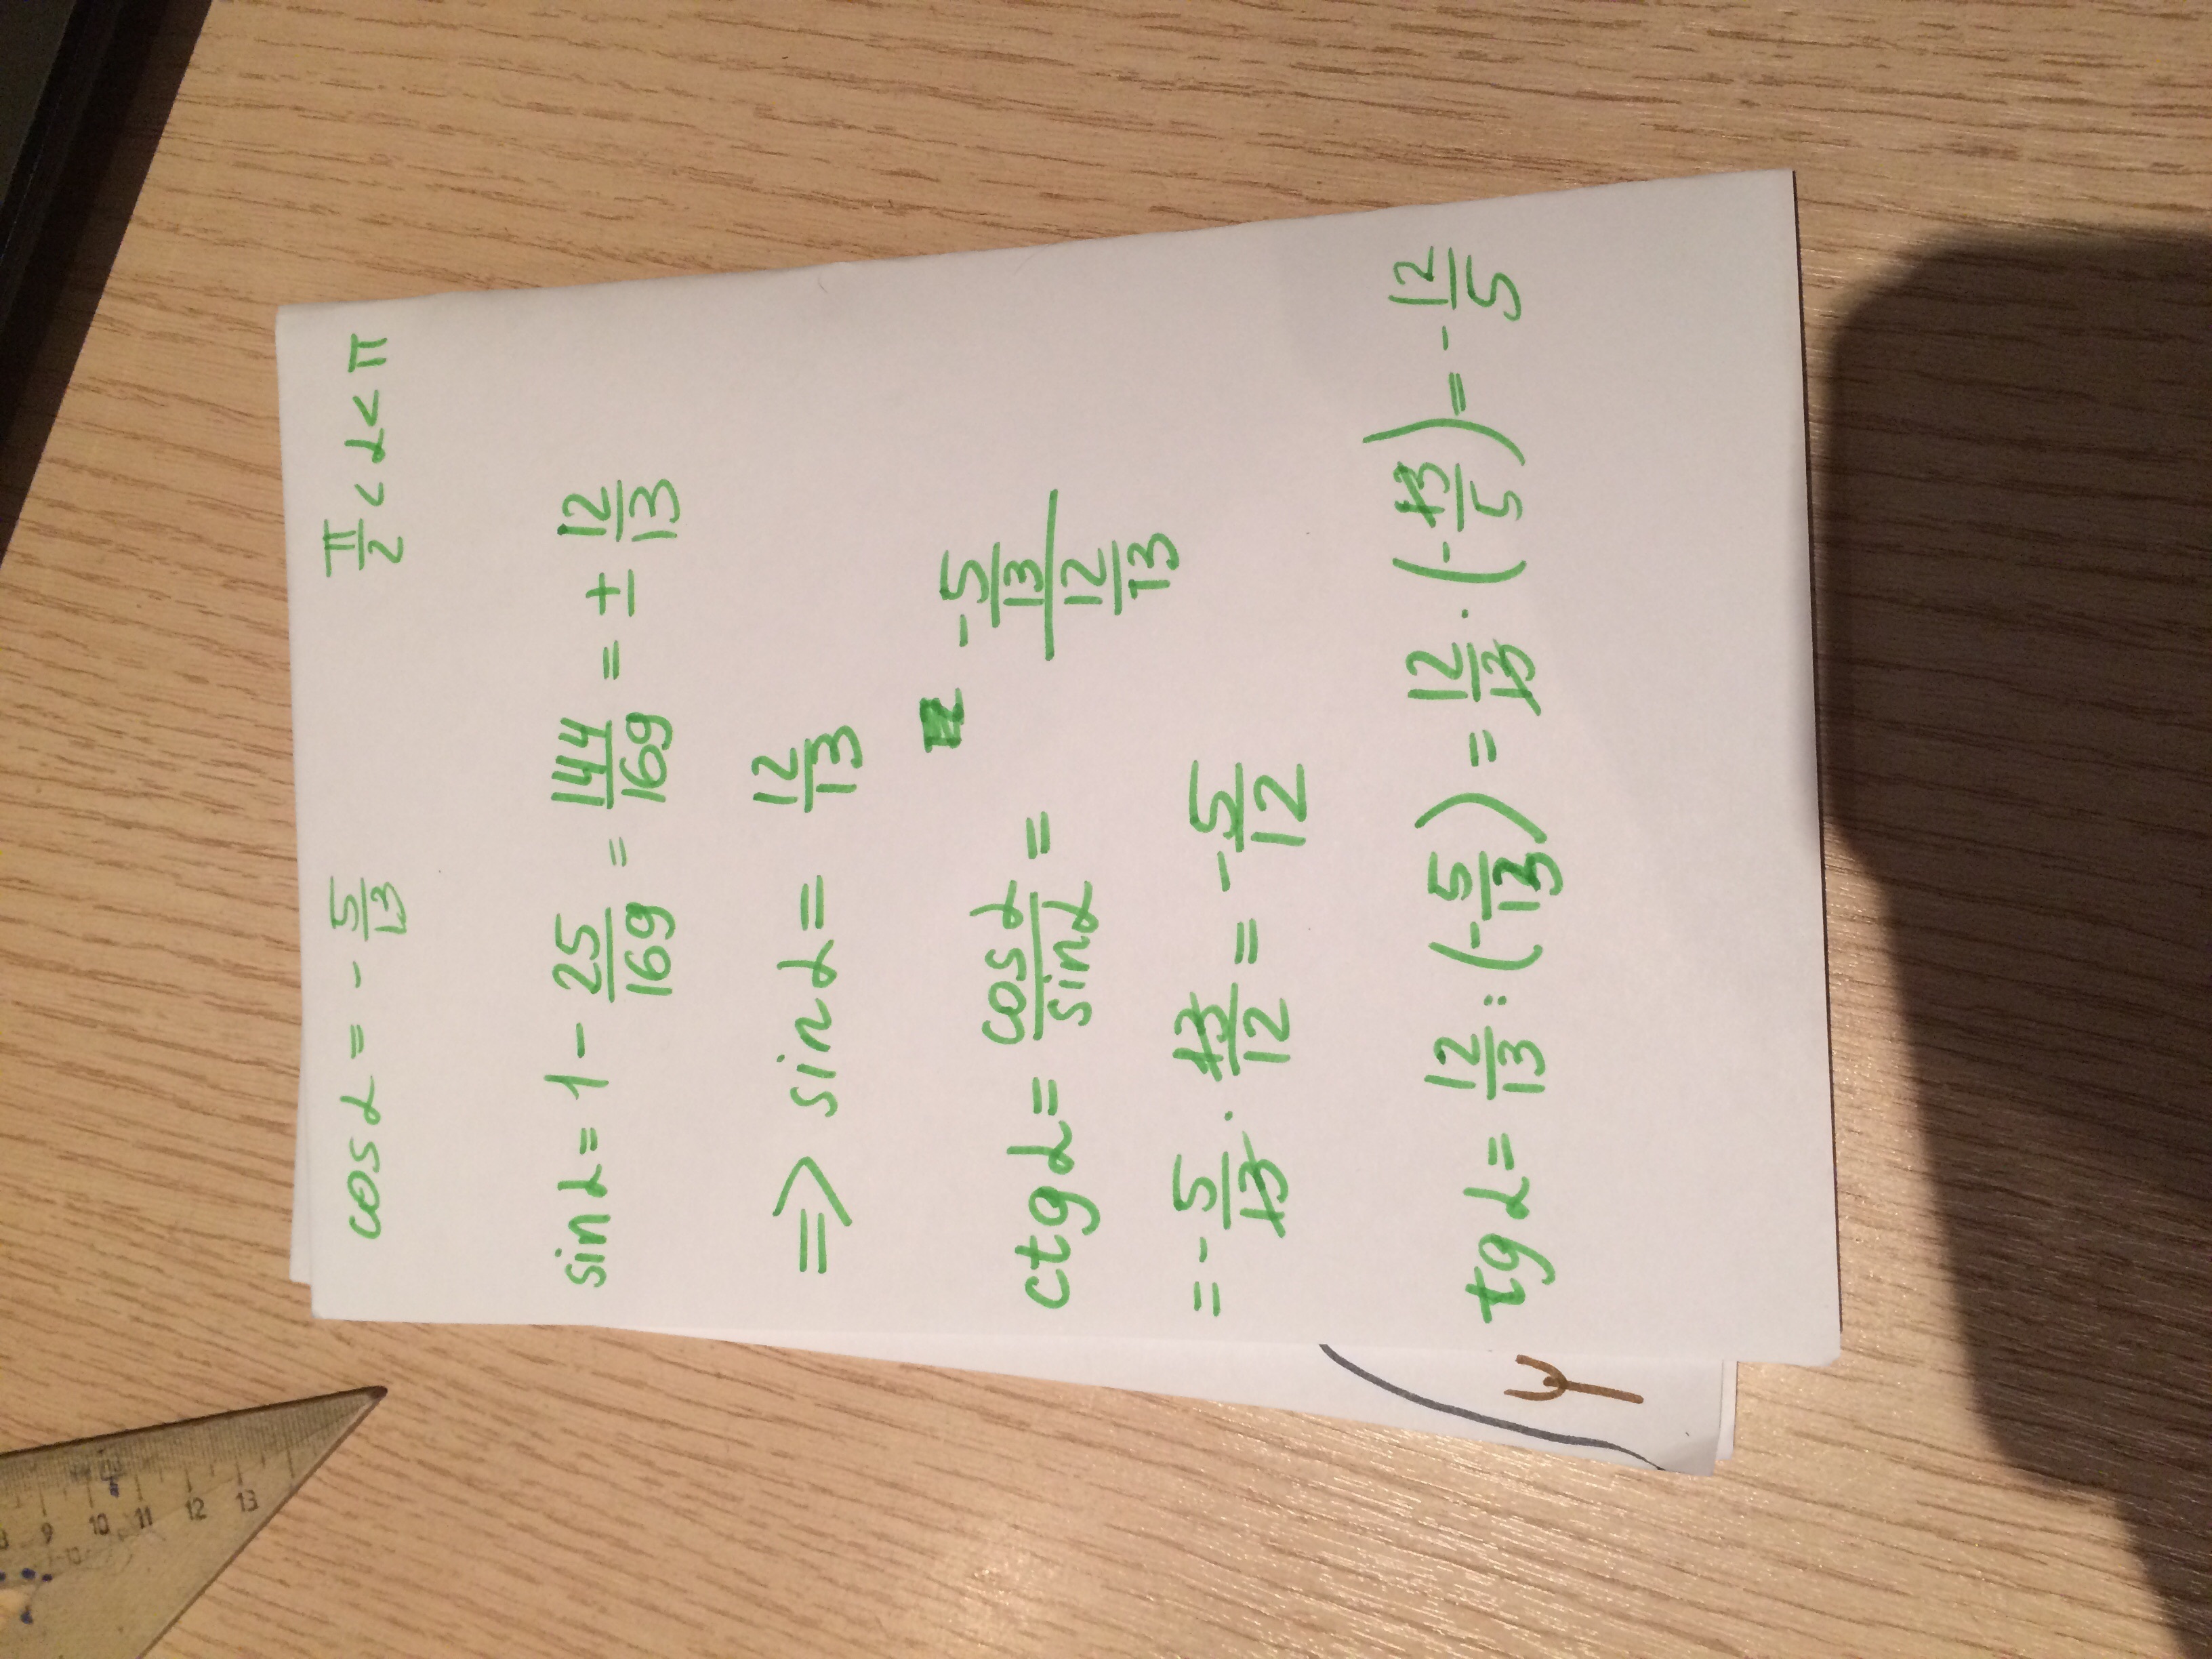 cos α = - 5/13 π/2 < α < π
sin α = 1 - 25/169 = 144/169 = ± 12/13
=> sin α = 12/13
ctg α = cos α/sin α = - 5/13 / 12/13
= - 5/13 · 13/12 = - 5/12
tg α = 12/13 : (- 5/13) = 12/13 · (- 13/5) = - 12/5
y
9 10 11 12 13